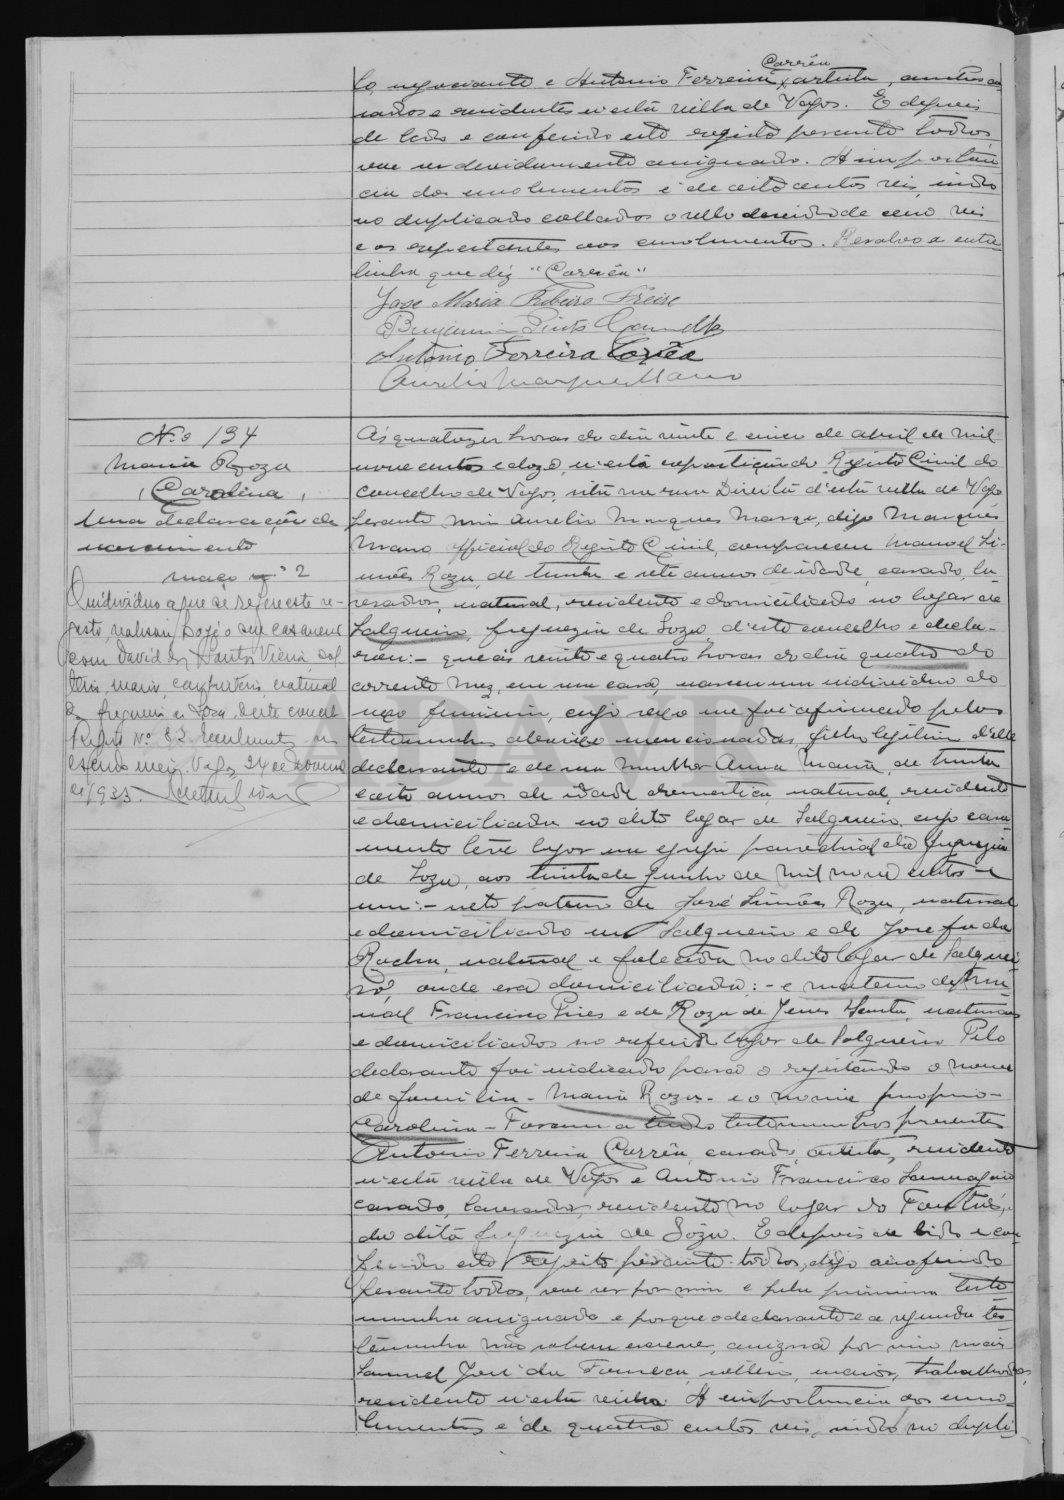 Corrêa
lo, negociante e Antonio Ferreira, artista, ambos ca-
sados e residentes n'esta villa de Vagos. E depois
de lido e conferido este registo perante todos
vae ser devidamente assignado. A importan-
cia dos emolumentos é de oitocentos réis, indo
no duplicado collados o sello devido de cem réis
e os respeitantes aos emolumentos. Resalvo a entre-
linha que diz "Corrêa"
José Maria Ribeiro Freire
Benjamin Pinto
Antonio Ferreira Corrêa
Aurelio Marques Mano
N.º 134
Maria Roza
(Carolina)
Uma declaração de
nascimento
Maço nº 2
O individuo a que se refere este re-
gisto, realisou hoje o seu casamento
com David dos Santos Vieira, sol-
teiro, maior, carpinteiro, natural
da freguesia de Soza, deste concelho.
Registo Nº 82
Vagos, 24 de
de 1933.
Ás quatorze horas do dia vinte e cinco de abril de mil
nove centos e doze, n'esta repartição do Registo Civil do
concelho de Vagos, sita na rua Direita d'esta villa de Vagos
perante mim Aurelio Marques Marqe, digo Marques
Mano, official do Registo Civil, compareceu Manoel Si-
mões Roza, de trinta e sete annos de idade, casado, la-
vrador, natural, residente e domiciliado no logar de
Salgueiro, freguezia de Soza, d'este concelho e decla-
rou:- que ás vinte e quatro horas do dia quatro do
corrente mez, em uma casa, nasceu um individuo do
sexo feminin, cujo sexo me foi afirmado pelas
testemunhas abaixo mencionadas, filho legitimo d'elle
declarante e de sua mulher Anna Maria, de trinta
e oito annos de idade domestica, natural, residente
e domiciliada no dito logar de Salgueiro, cujo casa-
mento teve logar na egreja parochial da freguezia
de Soza, aos trinta de Junho de mil nove centos e
um:- neto paterno de José Simões Roza, natural
e domiciliado em Salgueiro e de Josefa da
Rocha, natural e falecida no dito logar de Salguei-
ro, onde era domiciliada:- e materno de
Francisco Pires e de Roza de Jesus Santa, naturaes
e domiciliados no referido logar de Salgueiro Pelo
declarante foi indicado para o registando o nome
de familia - Maria Roza - e o nome proprio -
Carolina - Foram a tudo testemunhas presentes
Antonio Ferreira Corrêa, casado, artista, residente
n'esta villa de Vagos e Antonio Francisco Samagaio
casado, lavrador, residente no logar do
da dita freguezia de Soza. E depois de lido e con-
ferido este registo perante todos, digo conferido
perante todos, vae ser por mim e pela primeira teste-
munha assignado e porque o declarante e a segunda tes-
temunha não sabem escrever, assigna por mim mais
Samuel José da Fonseca, solteiro, maior, trabalhador,
residente n'esta villa. A importancia dos emo-
lumentos é de quatro centos réis, indo no dupli-